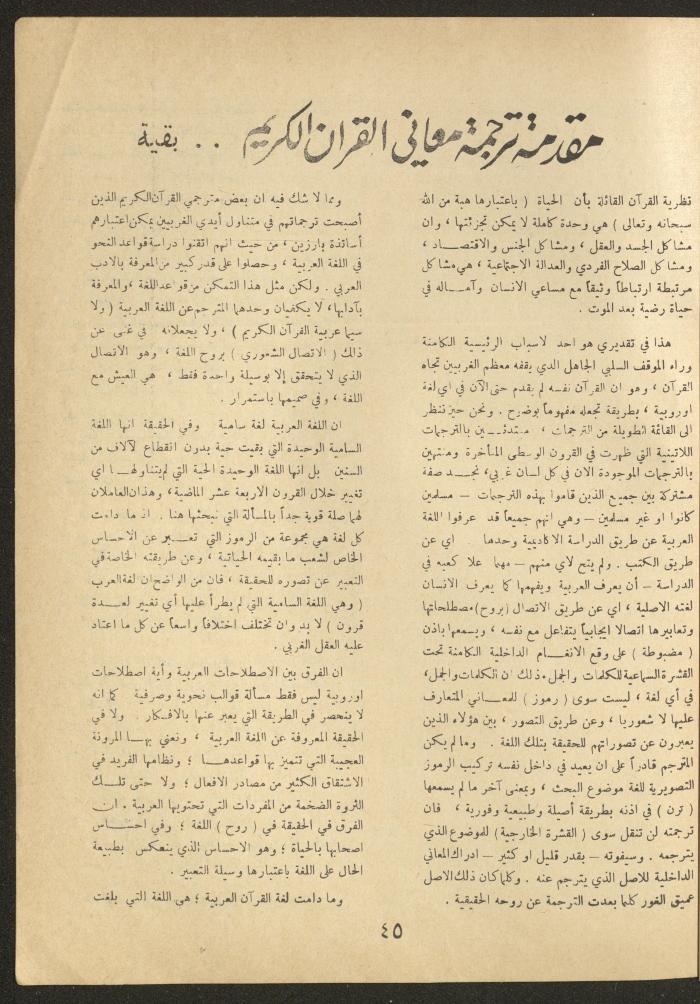 مقدمة ترجمة معاني القران الكريم .. بقية
نظرية القرآن القائلة بأن الحياة ( باعتبارها هبة من الله
سبحانه وتعالى ) هي وحدة كاملة لا يمكن تجزئتها ، وان
مشاكل الجسد والعقل ، ومشاكل الجنس والاقتصاد ،
ومشاكل الصلاح الفردي والعدالة الاجتماعية ، هي مشاكل
مرتبطة ارتباطاً وثيقاً مع مساعي الانسان وآماله في
حياة رضية بعد الموت .
هذا في تقديري هو احد الاسباب الرئيسية الكامنة
وراء الموقف السلبي الجاهل الذي يقفه معظم الغربيين تجاه
القرآن ، وهو ان القرآن نفسه لم يقدم حتى الآن في اي لغة
اوروبية ، بطريقة تجعله مفهوماً بوضوح . ونحن حين ننظر
الى القائمة الطويلة من الترجمات ، مبتدئين بالترجمات
اللاتينية التي ظهرت في القرون الوسطى المتأخرة ومنتهين
بالترجمات الموجودة الان في كل لسان غربي، نجد صفة
مشتركة بين جميع الذين قاموا بهذه الترجمات – مسلمين
كانوا او غير مسلمين – وهي انهم جميعاً قد عرفوا اللغة
العربية عن طريق الدراسة الاكاديمية وحدها . اي عن
طريق الكتب . ولم يتح لاي منهم – مهما علا كعبه في
الدراسة – أن يعرف العربية ويفهمها كما يعرف الانسان
لغته الاصلية ، اي عن طريق الاتصال (بروح) مصطلحاتها
وتعابيرها اتصالا ايجابياً يتفاعل مع نفسه ، ويسمعها باذن
( مضبوطة ) على وقع الانغام الداخلية الكامنة تحت
القشرة السماعية للكلمات والجمل . ذلك ان الكلمات والجمل،
في أي لغة ، ليست سوى ( رموز ) للمعاني المتعارف
عليها لا شعوريا ، وعن طريق التصور ، بين هؤلاء الذين
يعبرون عن تصوراتهم للحقيقة بتلك اللغة . وما لم يكن
المترجم قادراً على ان يعيد في داخل نفسه تركيب الرموز
التصويرية للغة موضوع البحث ، وبمعنى آخر ما لم يسمعها
( ترن ) في اذنه بطريقة أصيلة وطبيعية وفورية ، فان
ترجمته لن تنقل سوى ( القشرة الخارجية ) للموضوع الذي
يترجمه . وسيفوته – بقدر قليل او كثير – ادراك المعاني
الداخلية للاصل الذي يترجم عنه . وكلما كان ذلك الاصل
عميق الغور كلما بعدت الترجمة عن روحه الحقيقية .
ومما لا شك فيه ان بعض مترجمي القرآن الكريم الذين
أصبحت ترجماتهم في متناول أيدي الغربيين يمكن اعتبارهم
أساتذة بارزين ، من حيث انهم اتقنوا دراسة قواعد النحو
في اللغة العربية ، وحصلوا على قدر كبير من المعرفة بالادب
العربي . ولكن مثل هذا التمكن من قواعد اللغة ، والمعرفة
بآدابها، لا يكفيان وحدهما المترجم عن اللغة العربية ( ولا
سيما عربية القرآن الكريم ) ، ولا يجعلانه في غنى عن
ذلك ( الاتصال الشعوري ) بروح اللغة ، وهو الاتصال
الذي لا يتحقق إلا بوسيلة واحدة فقط ، هي العيش مع
اللغة ، وفي صميمها باستمرار .
ان اللغة العربية لغة سامية وفي الحقيقة انها اللغة
السامية الوحيدة التي بقيت حية بدون انقطاع لآلاف من
السنين بل انها اللغة الوحيدة الحية التي لم يتناولها اي
تغيير خلال القرون الاربعة عشر الماضية ، وهذان العاملان
لهما صلة قوية جداً بالمسألة التي نبحثها هنا . اذ ما دامت
كل لغة هي مجموعة من الرموز التي تعبر عن الاحساس
الخاص لشعب ما بقيمه الحياتية ، وعن طريقته الخاصة في
التعبير عن تصوره للحقيقة ، فان من الواضح ان لغة العرب
( وهي اللغة السامية التي لم يطرأ عليها أي تغيير لعدة
قرون ) لا بد وان تختلف اختلافاً واسعاً عن كل ما اعتاد
عليه العقل الغربي .
ان الفرق بين الاصطلاحات العربية وأية اصطلاحات
اوروبية ليس فقط مسألة قوالب نحوية وصرفية كما انه
لا ينحصر في الطريقة التي يعبر عنها بالافكار ولا في
الحقيقة المعروفة عن اللغة العربية ، ونعني بها المرونة
العجيبة التي تتميز بها قواعدها ؛ ونظامها الفريد في
الاشتقاق الكثير من مصادر الافعال ؛ ولا حتى تلك
الثروة الضخمة من المفردات التي تحتويها العربية . ان
الفرق في الحقيقة في ( روح ) اللغة ؛ وفي احساس
اصحابها بالحياة ؛ وهو الاحساس الذي ينعكس بطبيعة
الحال على اللغة باعتبارها وسيلة التعبير .
وما دامت لغة القرآن العربية ؛ هي اللغة التي بلغت
٤٥